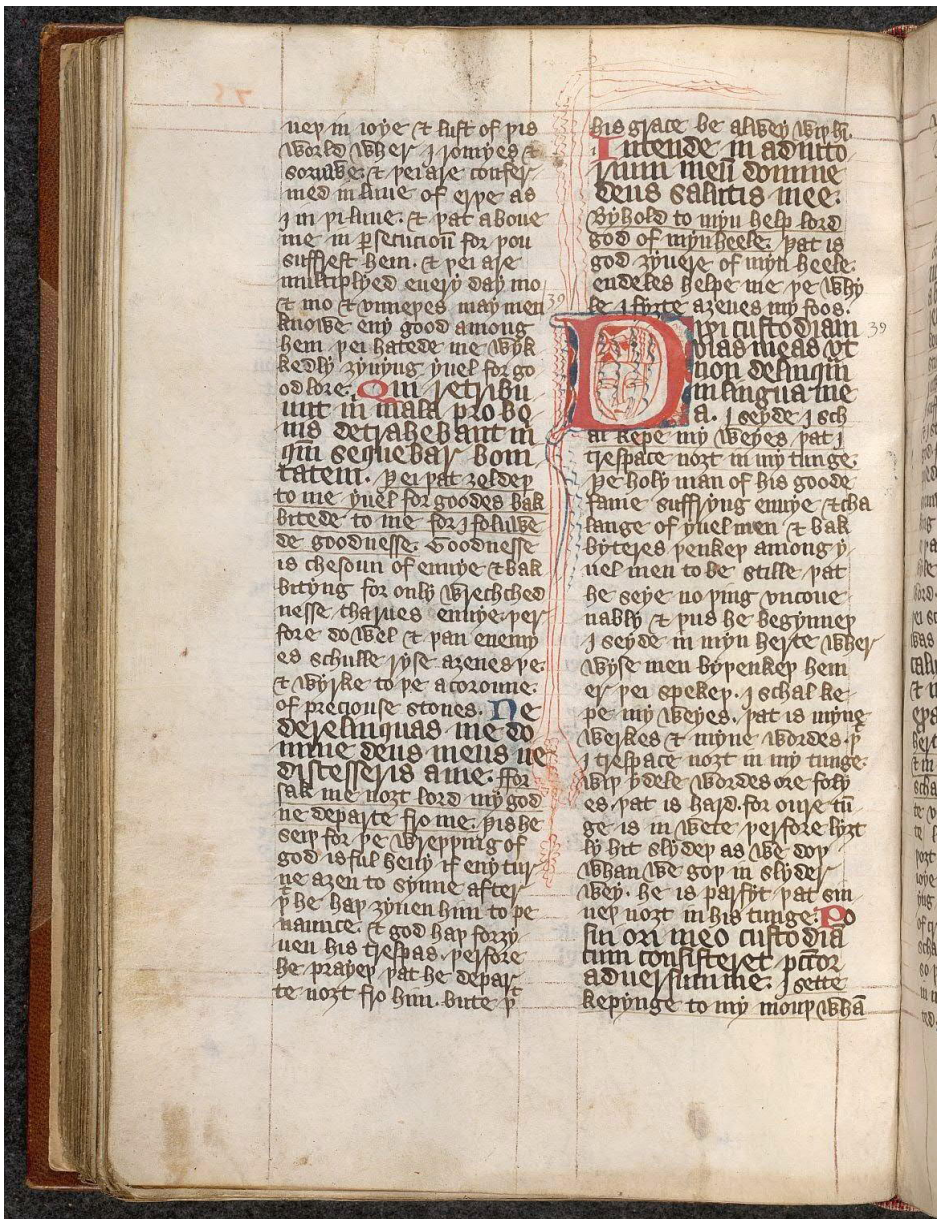 uep in ioye & lust of þis
world wher I romyes &
soruwe: & þei are confer
med in luue of erþe as
I in þi luue. & þat aboue
me in persecucioū for þou
suffrest hem. & þei are
multiplyed euery day mo
& mo & vnneþes may men
knowe eny good among
hem þei hatede me wyk
kedly ȝyuyng yuel for go
od lore. Qui retribu
unt in mala pro bo
nis detrahebant in
q̄m sequebar boni
tatem. þei þat ȝeldeþ
to me yuel for goodes bak
bitede to me for I foluwe
de goodnesse. Goodnesse
is chesoun of enuye & bak
bityng for only wrechched
nesse charues enuye. þer
fore do wel & þan enemy
es schulle ryse aȝenes þe
& wyrke to þe a coroune.
of preciouse stones. Ne
derelinquas me do
mine deus meus ne
discesseris a me. ffor
sak me noȝt lord my god
ne departe fro me. þis he
seiþ for þe wreþþing of
god is ful heuy if eny tur
ne aȝen to synne after
þ̄ he haþ ȝyuen him to pe
naunce. & god haþ forȝy
uen his trespas. þerfore
he prayeþ þat he depar
te noȝt fro him. bute þ̄
his grace be alwey wiþ hī.
Intende in adiuto
rium meū domine
deus salutis mee.
Byhold to myn help lord
god of myn heele. þat is
god ȝyuere of myn heele.
endeles helpe me þe why
le I fyȝte aȝenes my foos.
39
Dixi custodiam
39
vias meas vt
non delinquā
in lingua me
a. I seyde I sch
al kepe my weyes þat I
trespace noȝt in my tunge.
þe holy man of his goode
fame suffryng enuye & cha
lange of yuel men & bak
byteres þenkeþ among y
uel men to be stille þat
he seye no þing vncoue
nably & þus he begynneþ
I seyde in myn herte wher
wyse men byþenkeþ hem
er þei spekeþ. I schal ke
pe my weyes. þat is myne
werkes & myne wordes. þ̄
I trespace noȝt in my tunge.
wiþ ydele wordes ore foly
es. þat is hard. for oure tū
ge is in wete þerfore lyȝt
ly hit slydeþ as we doþ
whan we goþ in slyder
wey. he is parfyt þat sin
neþ noȝt in his tunge. Po
sui ori meo custodiā
cum consisteret pccor
aduersum me. I sette
kepynge to my mouþ whā